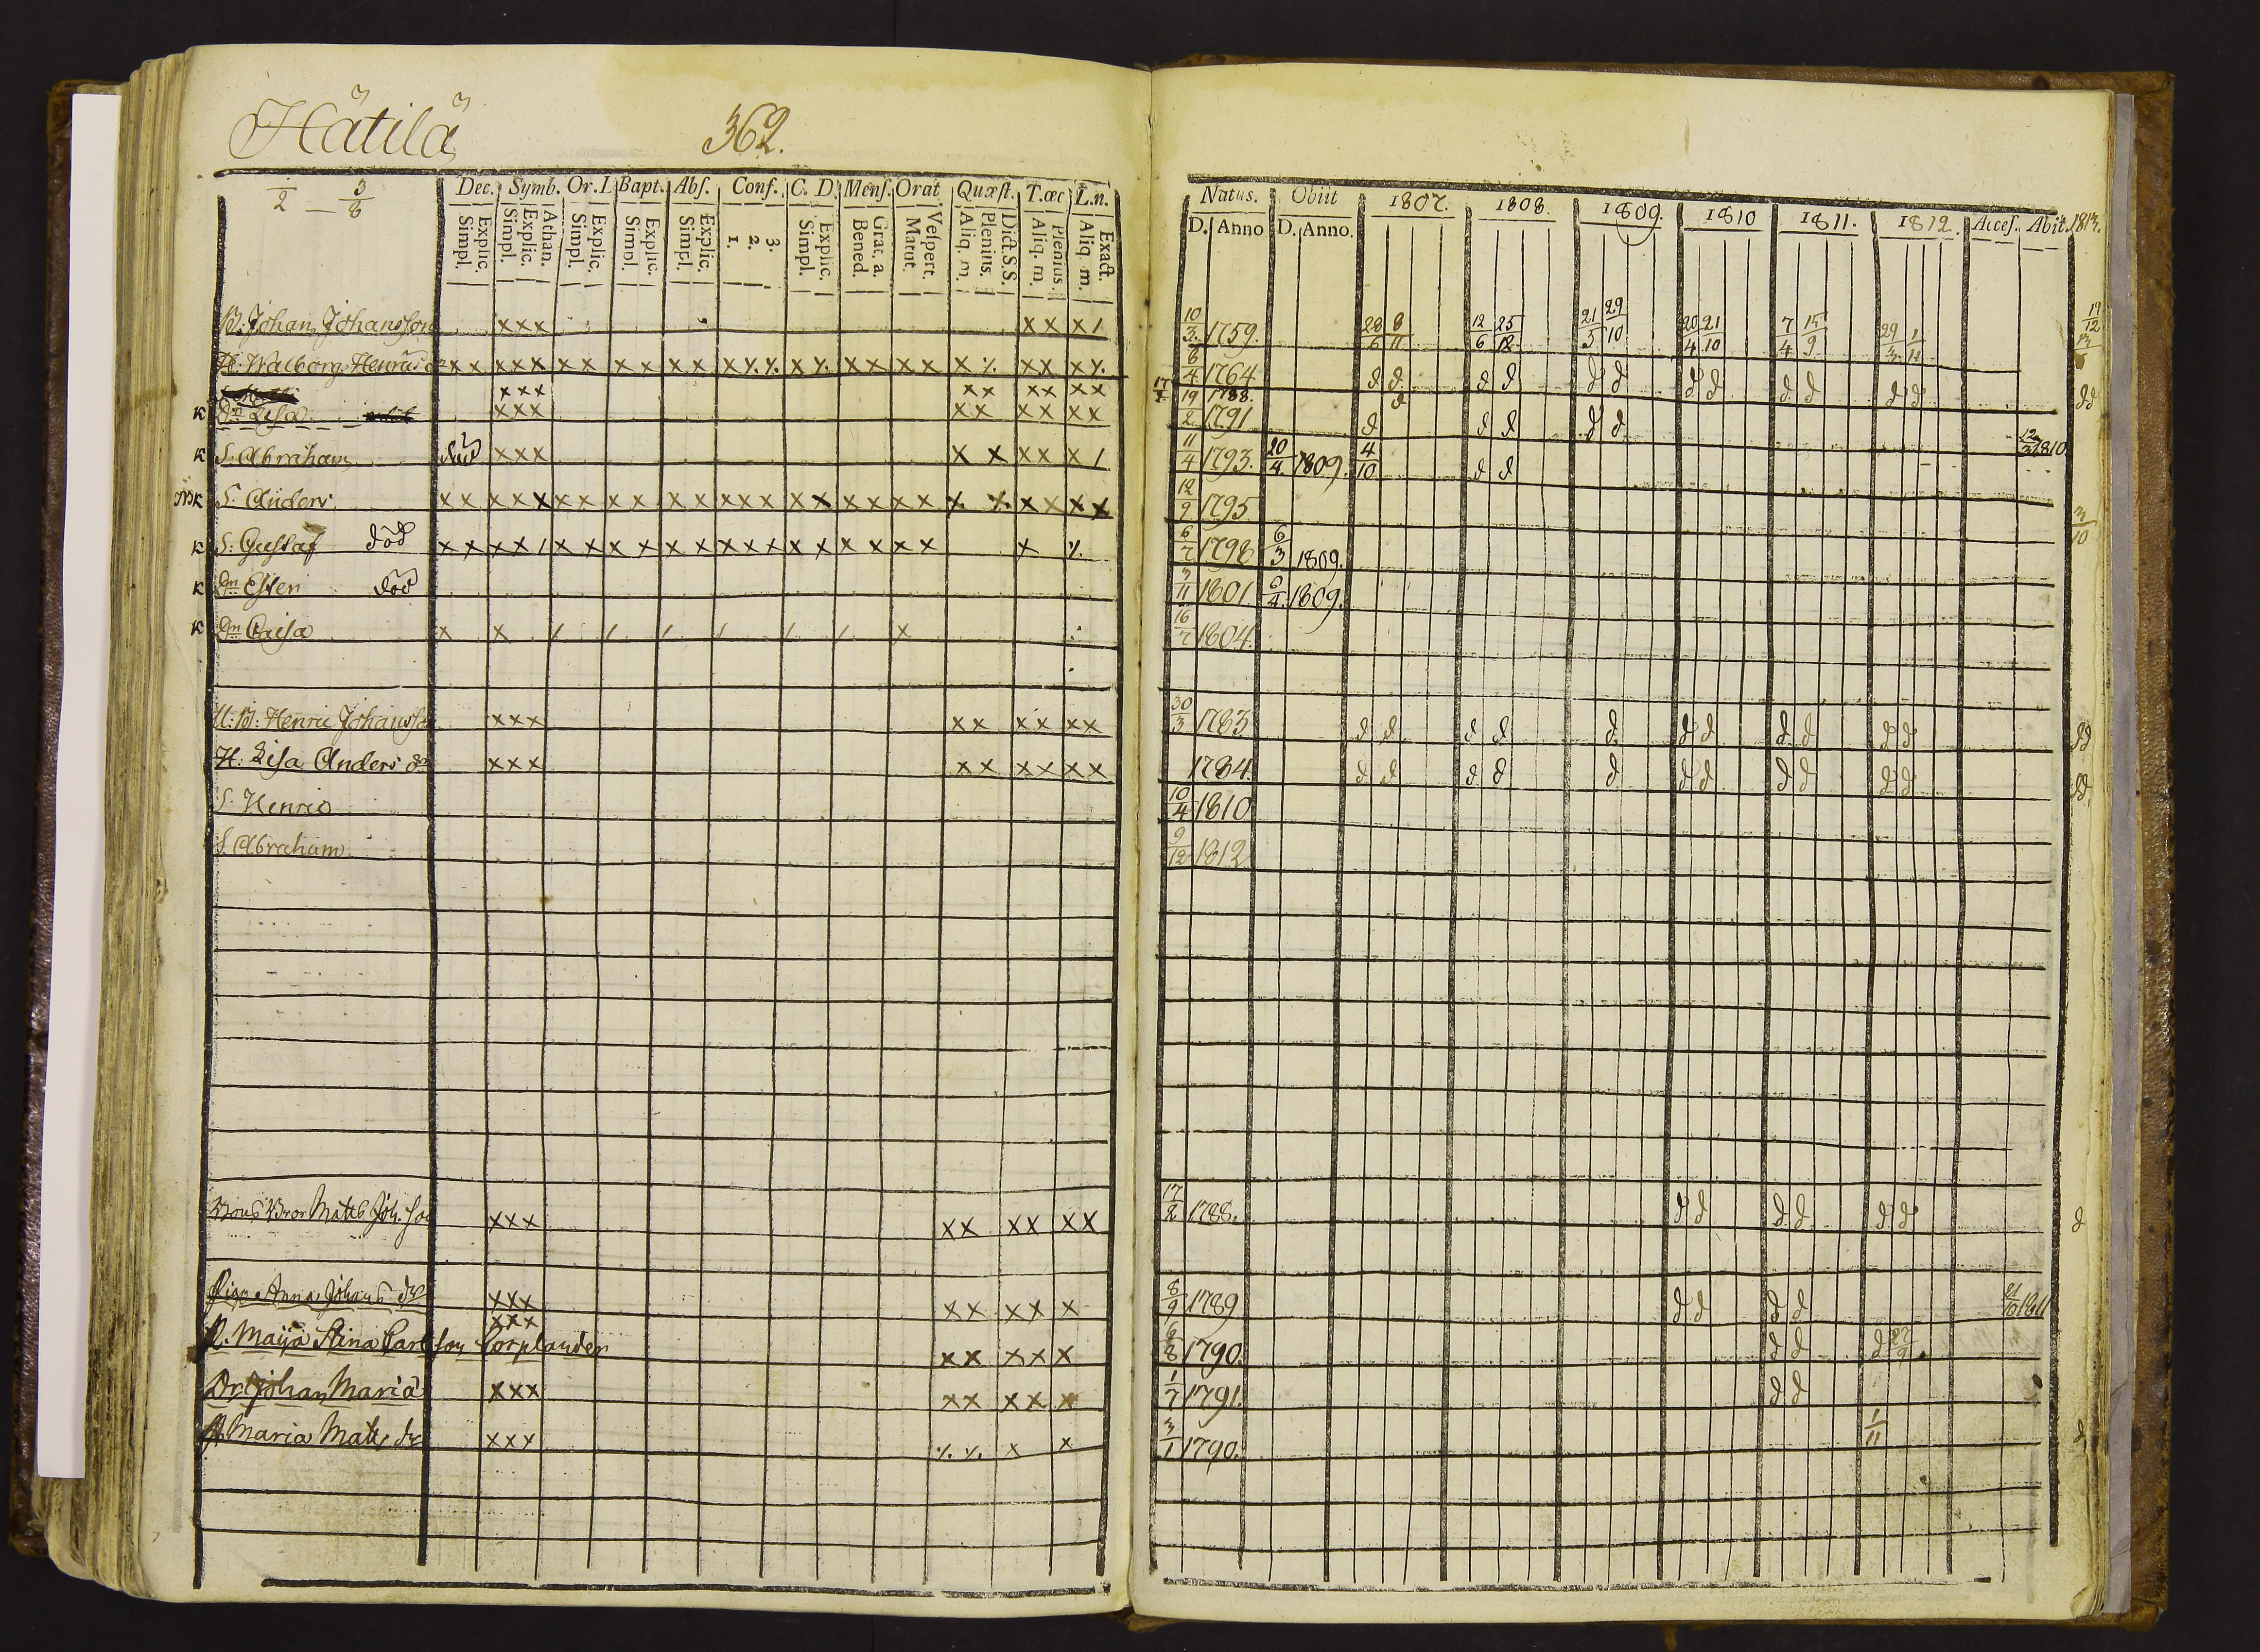 Hätilä 362.
1/2 — 3/8 Dec. Symb. Or. I. Bapt. Abſ. Conf. C. D. Menſ. Orat. Quæſt. T. œc L. n.
Explic. Simpl. Athan. Explic. Simpl. Explic. Simpl. Explic. Simpl. Explic. Simpl. 3. 2. 1. Explic. Simpl. Grat. a. Bened. Veſpert. Matut. Dict. S. S. Plenius. Aliq. m. Plenius. Aliq. m. Exact. Aliq. m.
B. Johan Johansson xxx xx x/
H. Walborg Henricsdr xx xxx xx xx xx x x xx xx x xx x
xxx xx xx xx
K Dn Lisa xxx xx xx xx
K S. Abraham död xxx x x xx x/
K S. Anders xx xxx xx xx xx xxx xx xx xx xx xx
K S: Gustaf död xx xx/ xx xx xx xxx xx xx xx x
K Dn Ester död
K Dn Caisa x x / / / / / / x
Henric Johansson xxx xx xx xx
H: Lisa Anders dr xxx xx xx xx
S. Henric
S. Abraham
Bror Matts Joh. son xxx xx xx xx
Pigan Anna Johans dr xxx xx xx x
P. Maija Stina Carlsson Corplander xxx xx xx x
Johan Maria xxx xx xx x
P. Maria Matts dr xxx x x
Natus. Obiit 1807. 1808. 1809. 1810 1811. 1812. Acceſ. Abit. 1813.
D. Anno D. Anno.
10/3 1759. 28/6 8/11 12/6 25/12 21/5 29/10 20/4 21/10 7/4 15/9 29/3 1/11 19/12
6/4 1764 d d d d d d d d d d d d dd
19 1788. d
2 1791 d d d d d 12/3 1810
11/4 1793. 20/4 1809. 4/10 d d
12/9 1795 3/10
6/7 1798 6/3 1809.
3/11 1801 6/4 1809.
16/7 1804.
30/3 1783 d d d d d d d d d d d dd
1784. d d d d d d d d d d d dd
10/4 1810
9/12 1812
17/2 1788. d d d d d d d
8/9 1789 d d d d 1811
6/8 1790. d d d 27/9
1/7 1791. d d
3/1 1790. 1/11 d